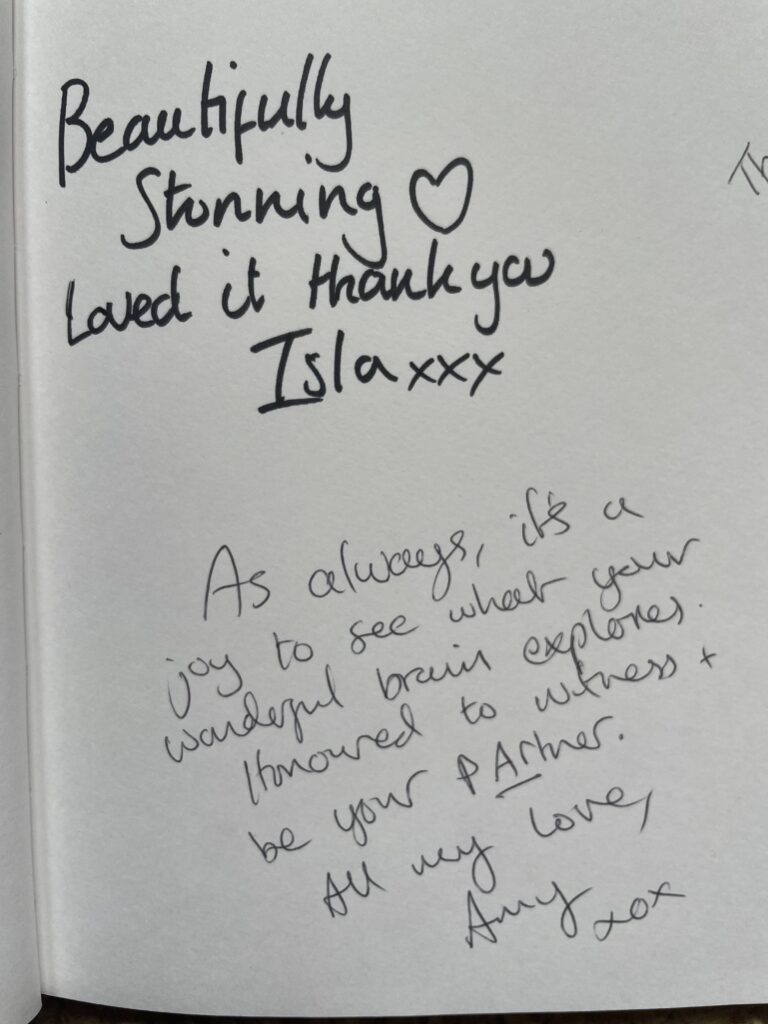 Beautifully
Stunning ♡
Loved it thank you
Isla xxx
As always, it's a
joy to see what your
wonderful brain explores.
Honoured to witness +
be your pArtner.
All my love,
Amy xox
Th